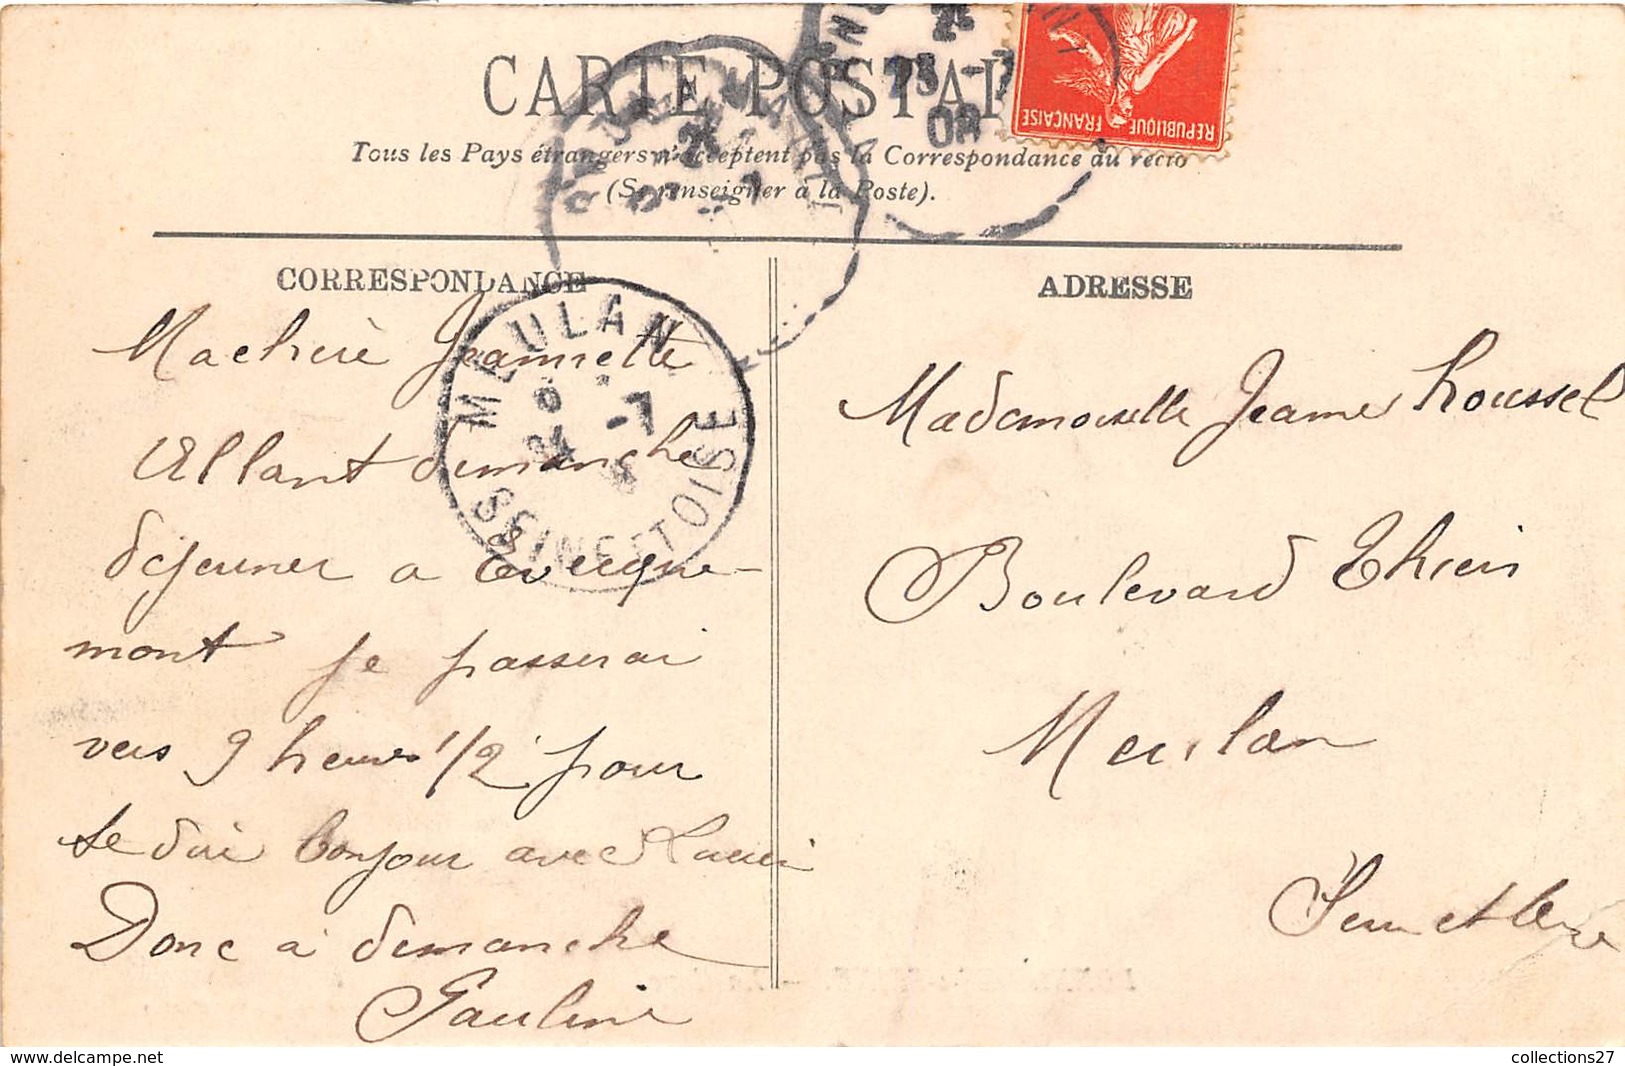 CARTE POSTAL
Tous les Pays étrangers n'acceptent pas la Correspondance au recto
(Se renseigner à la Poste).
REPUBLIQUE FRANÇAISE
CORRESPONDANCE
ADRESSE
MEULAN
SEINE ET OISE
24 -7
Ma chère Jeannette
Allant dimanche
déjeuner a Evecque-
mont je passerai
vers 9 heures 1/2 pour
te dire bonjour avec
Donc à dimanche
Pauline
Mademoiselle Jeanne Roussel
Boulevard Thiers
Meulan
Seine et Oise
collections27